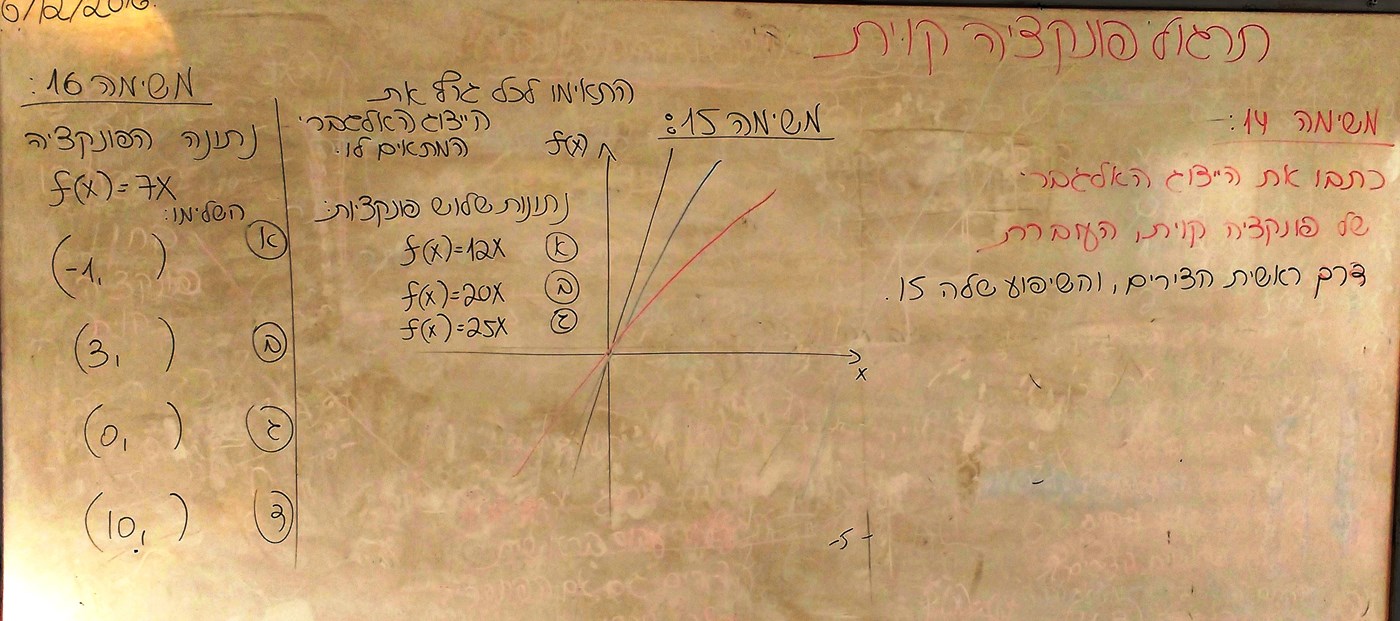 תרגול פונקציה קוית
משימה 14:
כתבו את הייצוג האלגברי
של פונקציה קוית, העוברת
דרך ראשית הצירים, והשיפוע שלה 15.
משימה 15:
התאימו לכל גרף את
הייצוג האלגברי
המתאים לו.
נתונות שלוש פונקציות:
א f(x)=12x
ב f(x)=20x
ג f(x)=25x
f(x)
x
-5
6/12/2016
משימה 16:
נתונה הפונקציה
f(x)=7x
השלימו:
א (-1, )
ב (3, )
ג (0, )
ד (10, )